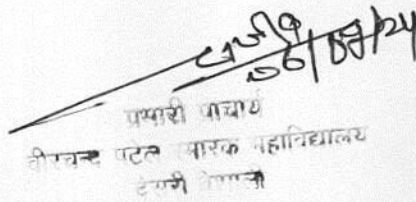 06/08/24
प्रभारी प्राचार्य
वीरचन्द पटेल स्मारक महाविद्यालय
देसरी वैशाली